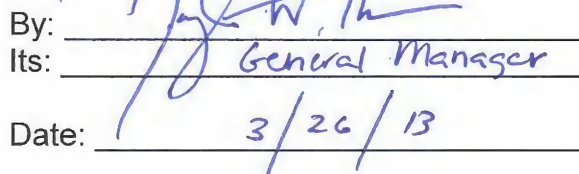 By:
Its: General Manager
Date: 3/26/13